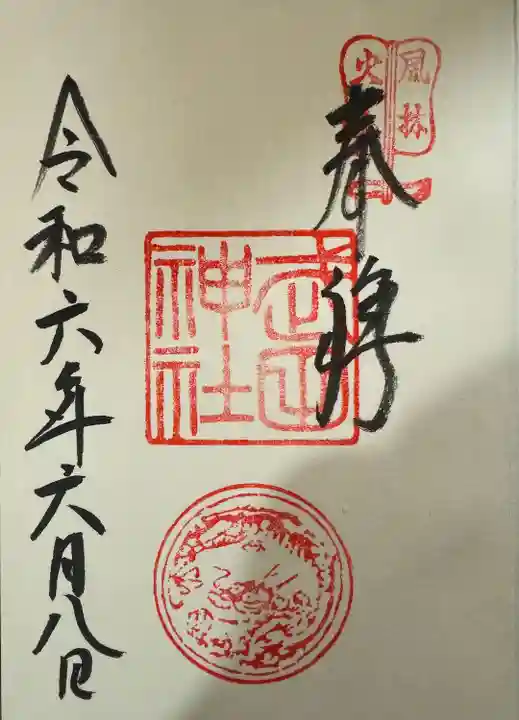 風林火山
奉拝
武田神社
令和六年六月八日